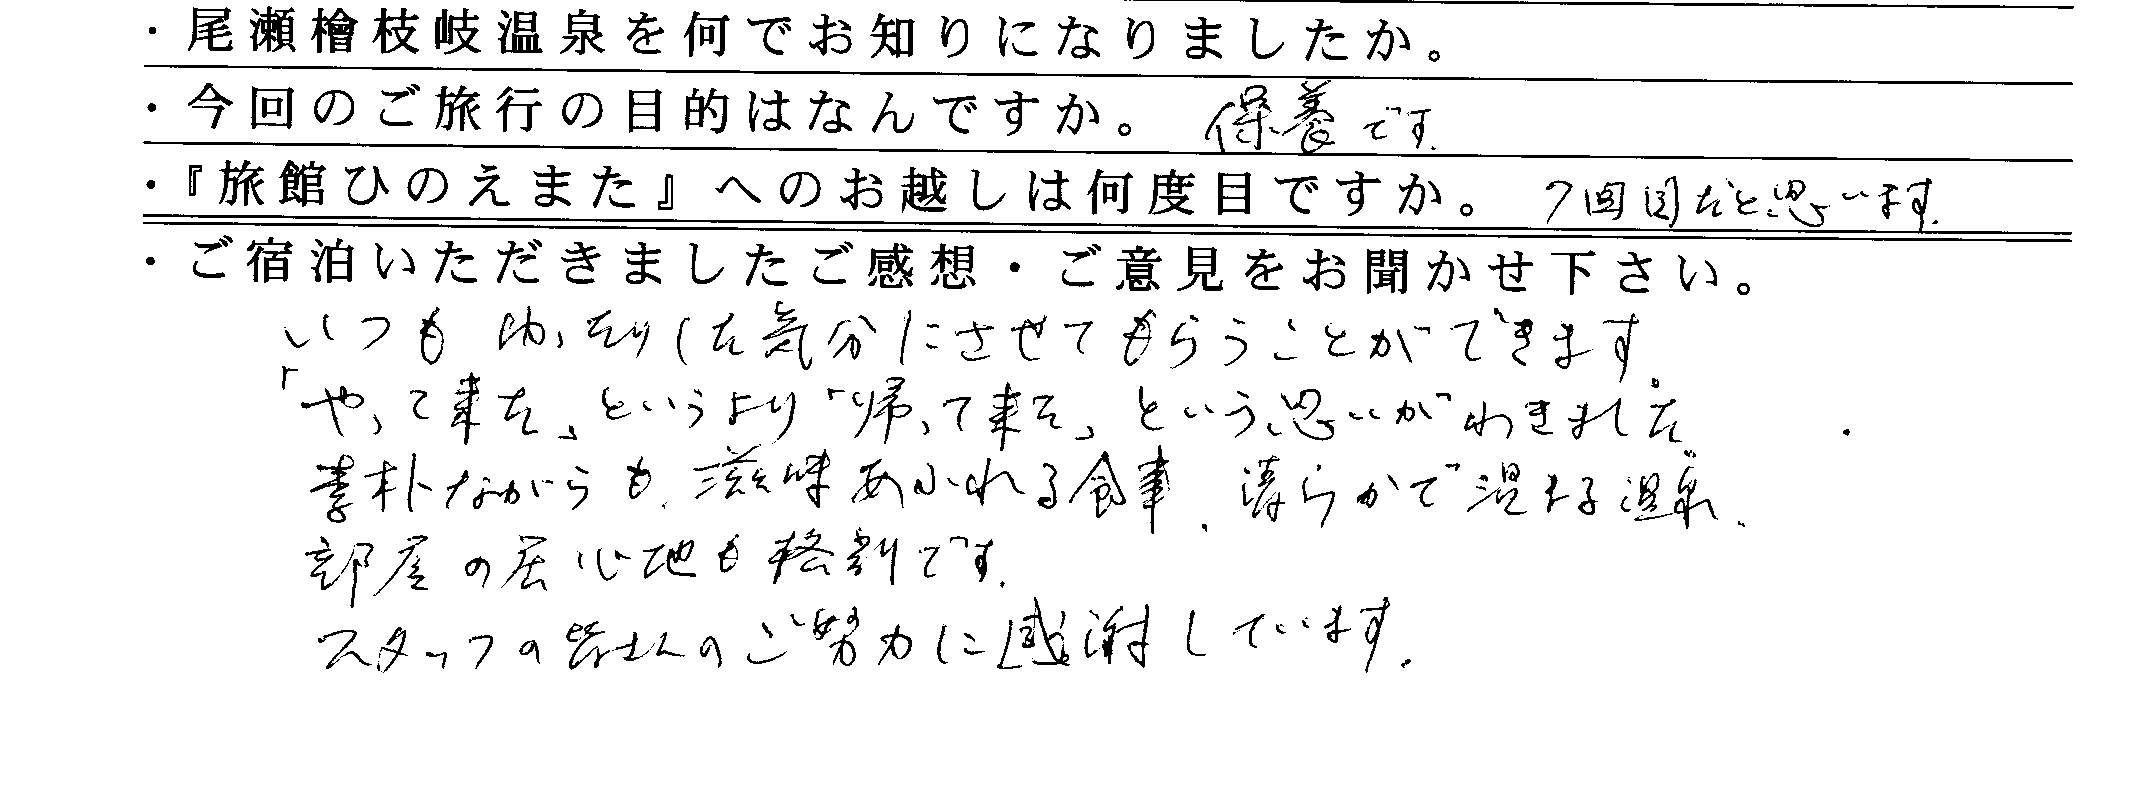 ・尾瀬檜枝岐温泉を何でお知りになりましたか。
・今回のご旅行の目的はなんですか。 保養です.
・『旅館ひのえまた』へのお越しは何度目ですか。 7回目だと思います.
・ご宿泊いただきましたご感想・ご意見をお聞かせ下さい。
いつもゆったりした気分にさせてもらうことができます。
「やって来た」というより「帰って来た」という思いがわきました。
素朴ながらも、滋味あふれる食事、清らかで温まる温泉、
部屋の居心地も格別です.
スタッフの皆さんのご努力に感謝しています.